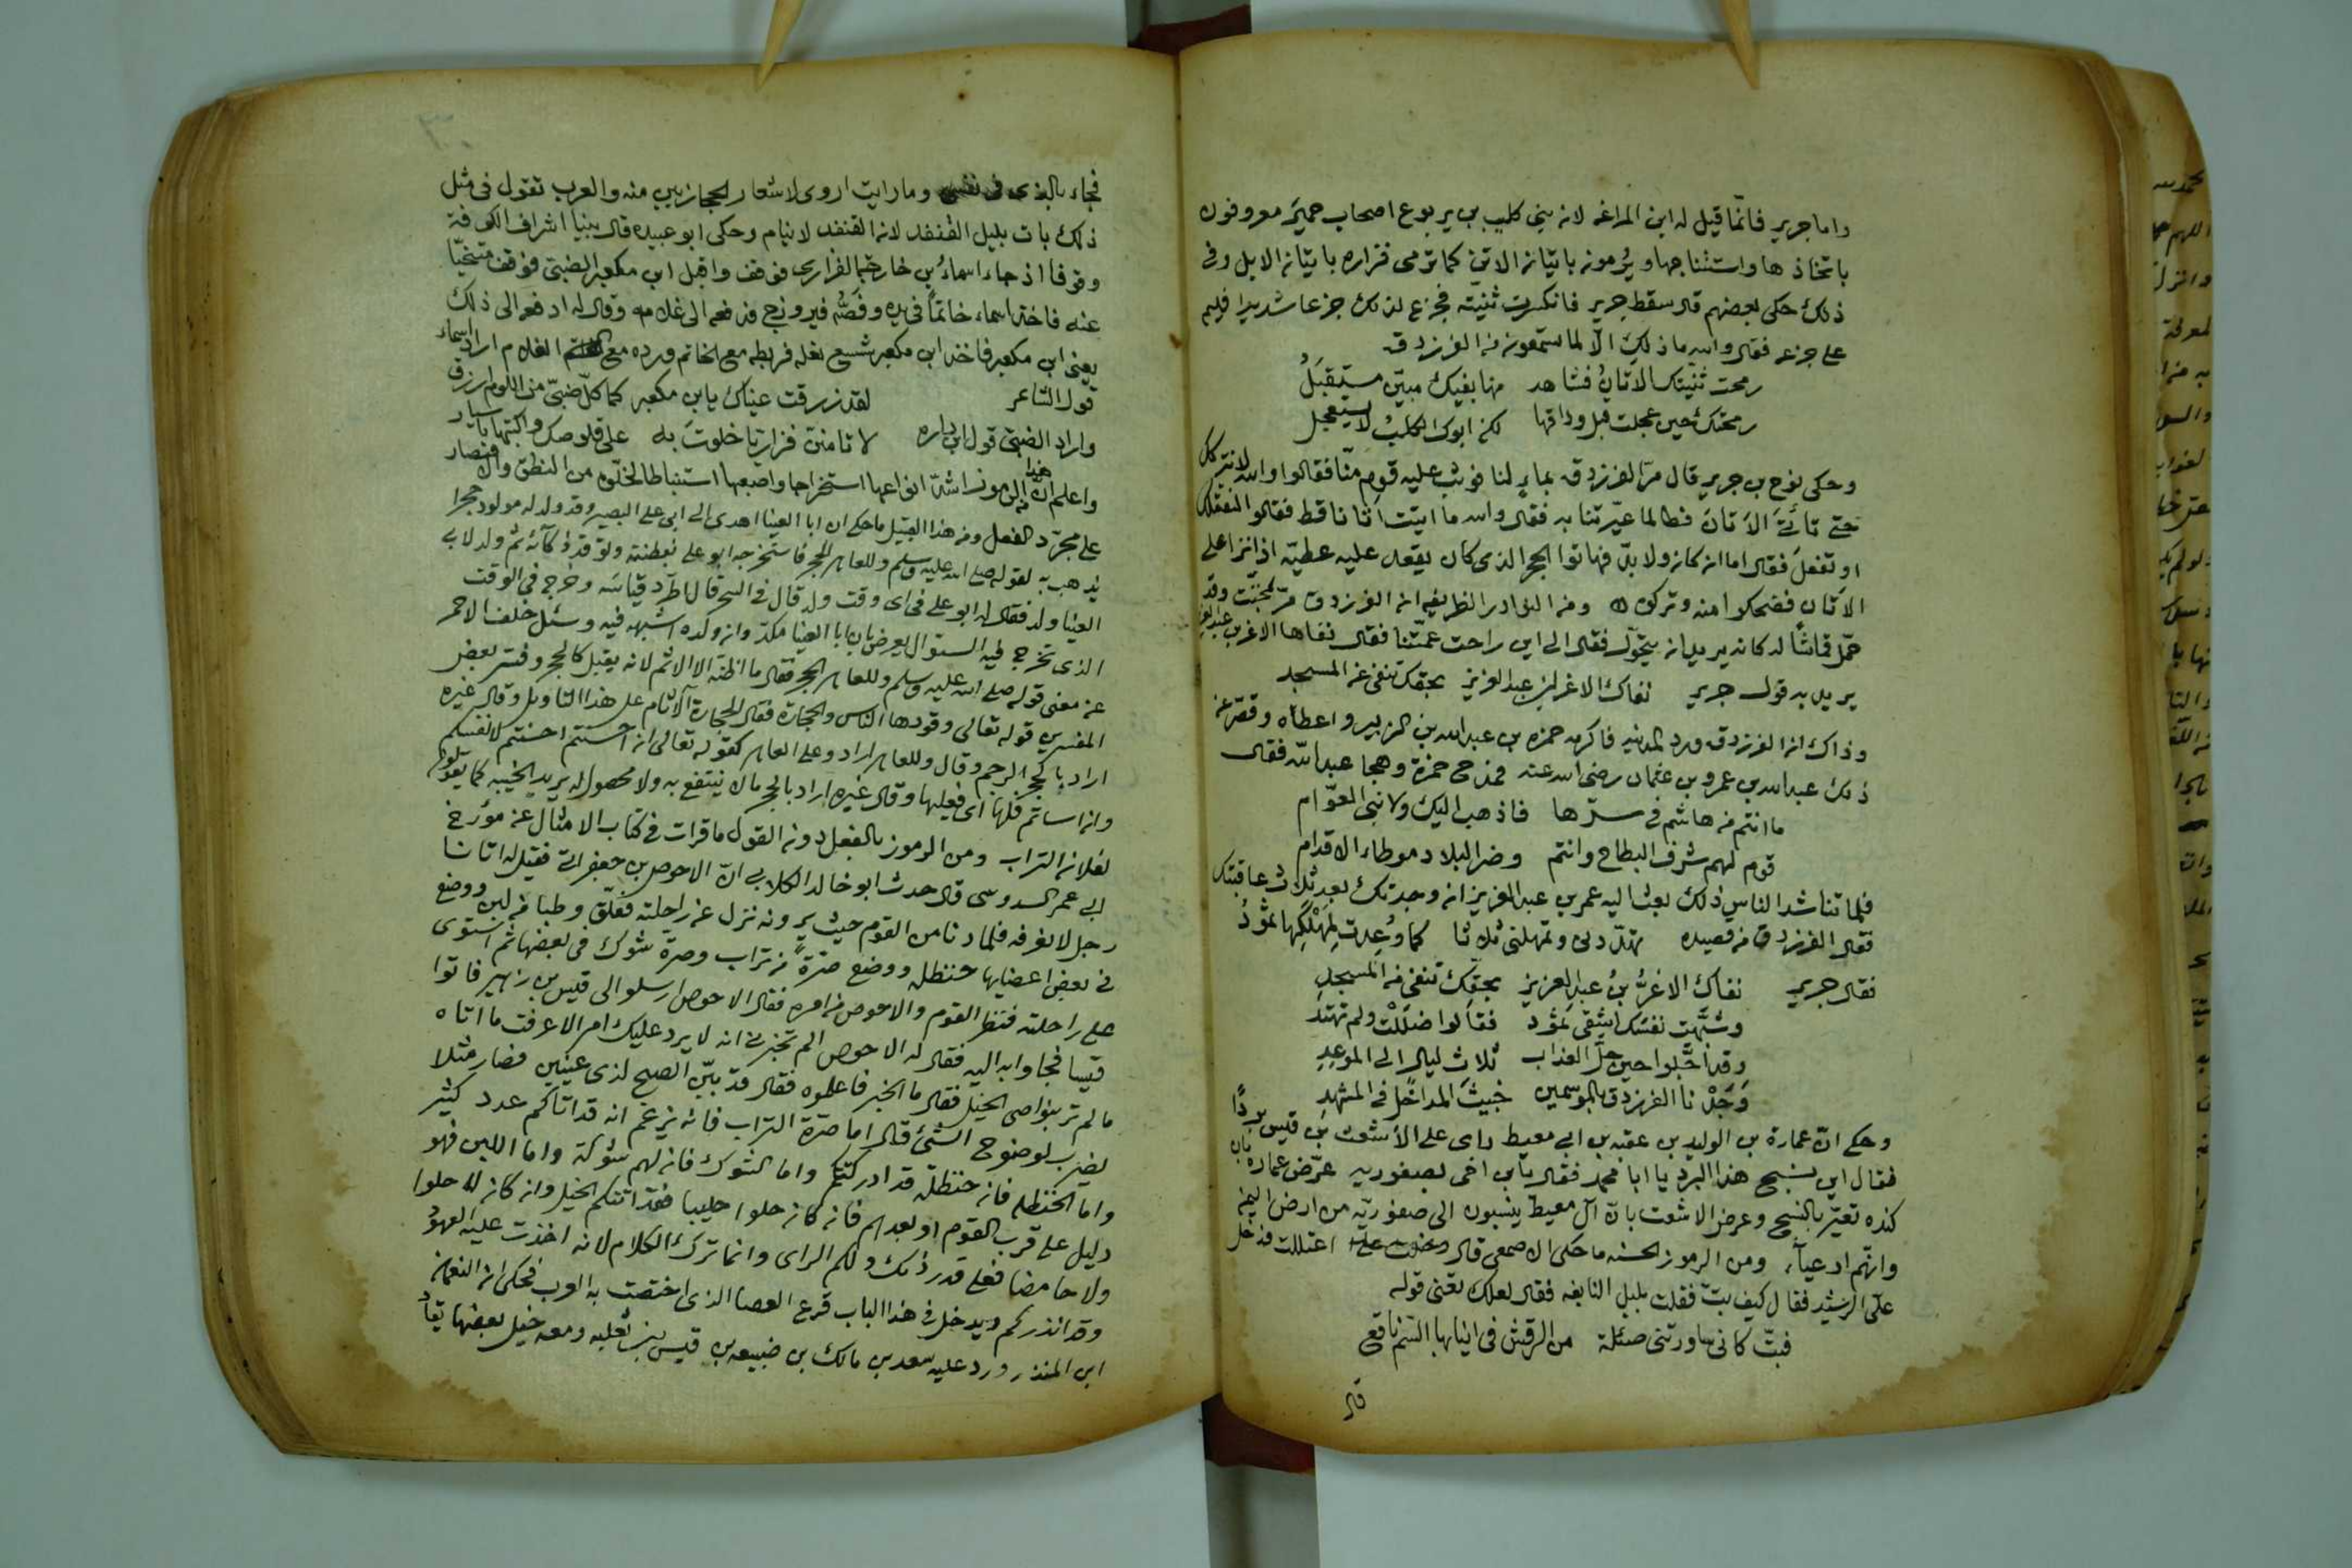 واما جرير فانما قيل له ابن المراغه لانه بني كليب بن يربوع اصحاب حمير معروفون
باتخاذها واستنتاجها ويُرمونه باتيانه الاتن كما ترمى فزاره باتيانه الابل وفى
ذلك حكى بعضهم قال سقط جرير فانكسرت ثنيته فجزع لذلك جزعا شديدا فليم
على جزعه فقال والله ما ذلك الا لما ستمعونه من الفرزدق
رمحت ثنيتك الاتانُ فشاهد منها بفيك مبيّن مستقبَلُ
رمحتك حين عجلت قبل وداقها لكن ابوك الكلبُ لا يستعجل
وحكى نوح بن جرير قال مرّ الفرزدق بماءٍ لنا فوثب عليه قوم منّا فقالوا والله لا نتركك
حتى تاتَى الاَتانَ فطالما عيّرتنا به فقال والله ما اتيت اتانا قط فقالوا لتفعلن
او تفعل فقال اما ان كان ولا بدّ فهاتوا الحجر الذى كان يقعد عليه عطيّه اذا نزا على
الاتان فضحكوا منه وتركوه ومن النوادر الظريفه ان الفرزدق مرّ بمخنّث وقد
حمّل قماشًا له كانه يريد ان يتحوّل فقال الى اين راحت عمّتنا فقال نفاها الاغر بن عبد العزيز
يريد به قول جرير نفاك الاغر ابن عبد العزيز بحقك تنفى عن المسجد
وذاك ان الفرزدق ورد المدينه فاكرمه حمزه بن عبد الله بن الزبير واعطاه وقصّر عنه
ذلك عبد الله بن عمرو بن عثمان رضى الله عنه فمدح حمزة وهجا عبد الله فقال
ما انتم من هاشم فى سرّها فاذهب اليك ولا بنى العوّام
قوم لهم شرف البطاح وانتم وضر البلاد موطاء الاقدام
فلما تناشد الناس ذلك بعث اليه عمر بن عبد العزيز انه وجدتك بعد ثلاث عاقبتك
فقال الفرزدق من قصيده تهدّدنى وتمهلنى ثلاثا كما وُعِدت لِمَهْلَكِها ثمُودُ
فقال جرير نفاك الاغرُّ بنُ عبد العزيز بحقِّك تنفى من المسجدِ
وشبَّهت نفسَك اشقى ثمُود فقالوا ضللْتَ ولم تهتد
وقد اجَّلوا حين حلَّ العذاب ثلاث ليال الى الموعِدِ
وَجَدْنا الفرزدق بالموسمين خبيثَ المداخل فى المشهدِ
وحكى انّ عمارة بن الوليد بن عقبه بن ابى معيط راى على الاشعث بن قيس بردًا
فقال اين نسج هذا البرد يا ابا محمد فقال يا بن اخى بصفوريه عرّض عماره بان
كنده تعيّر بالنسج وعرض الاشعث بانّ آل معيط ينسبون الى صفوريّه من ارض اليمن
وانهم ادعيآء ومن الرموز الحسنه ما حكى الاصمعى قال اعتللت فدخل
على الرشيد فقال كيف بتّ فقلت بليل النابغه فقال لعلك تعنى قوله
فبتّ كانى ساورتنى ضئلة من الرقش فى انيابها السّم ناقع
قال
فجاء بالذى فى نفسى وما رايت اروى لاشعار الحجازيين منه والعرب تقول فى مثل
ذلك بات بليل القنفد لانه القنفد لا ينام وحكى ابو عبيده قال بينا اشراف الكوفة
وقوفا اذ جاء اسماءُ بن خارجة الفزارى فوقف واقبل ابن مكعبر الضبى فوقف متنحّيا
عنه فاخذ اسماء خاتمًا فى يده وفَصُّه فيروزج فدفعه الى غلامه وقال له ادفعه الى ذلك
يعنى ابن مكعبر فاخذ ابن مكعبر شسع نعله فربطه مع الخاتم ورده مع الغلام اراد اسماء
قول الشاعر لقد زرقت عيناك يا بن مكعبر كما كلّ ضبىّ من اللوم ازرق
واراد الضبى قول ابن داره لا تامننّ فزاريّا خلوتَ به على قلوصك واكتبها باسيار
واعلم ان هذا من الرموز اشدّ انواعها استخراجا واصعبها استنباطا لخلّوه من النطق والاقتصار
على مجرّد الفعل ومن هذا القبيل ما حكى ان ابا العينا اهدى الى ابى على البصير وقد ولد له مولود حجرا
يذهب به لقوله صلى الله عليه وسلم وللعاهر الحجر فاستخرجه ابو على بفطنته وتوقد ذكآئه ثم ولد لابى
العينا ولد فقال له ابو على فى اى وقت ولد قال فى السحر قال اطّرد قياسه وخرج فى الوقت
الذى تخرج فيه السوال يعرض بان ابا العينا مكدّ وان ولده اشبهه فيه وسئل خلف الاحمر
عن معنى قوله صلى الله عليه وسلم وللعاهر الحجر فقال ما اظنّه الا الاثم لانه يقبل كالحجر وفسّر بعض
المفسرين قوله تعالى وقودها الناس والحجارة فقال الحجارة الآثام على هذا التاويل وقال غيره
اراد بالحجر الرجم وقال وللعاهر اراد وعلى العاهر كقوله تعالى ان احسنتم احسنتم لانفسكم
وان اساتم فلها اى فعليها وقال غيره اراد بالحجر مالا ينتفع به ولا محصول له يريد الخيبه كما يقولون
لفلان التراب ومن الرموز بالفعل دونه القول ما قرات فى كتاب الامثال عن مؤرخ
ابى عمر السدوسى قال حدث ابو خالد الكلابى انّ الاحوص بن جعفر اتى فقيل له اتانا
رجل لا نعرفه فلما دنا من القوم حيث يرونه نزل عن راحلته فعلّق وطبا من لبن ووضع
فى بعض اعضايها حنظله ووضع صرّةً من تراب وصرة شوك فى بعضها ثم استوى
على راحلته فنظر القوم والاحوص فى امره فقال الاحوص ارسلوا الى قيس بن زهير فاتوا
قيسا فجاوا به اليه فقال له الاحوص الم تخبرنى انه لا يرد عليك امر الا عرفت ما اتاه
ما لم تر بنواصى الخيل فقال ما الخبر فاعلموه فقال قد بيّن الصبح لذى عينين فصار مثلا
يضرب لوضوح الشئ قال اما صرّة التراب فانه يزعم انه قد اتاكم عدد كثير
واما الحنظله فان حنظلة قد ادركتكم واما الشوك فان لهم شوكة واما اللبن فهو
دليل على قرب القوم او بعدهم فانه كان حلوا حليبا فقد اتتكم الخيل وان كان لا حلوا
ولا حامضا فعلى قدر ذلك ولكم الراى وانما ترك الكلام لانه اخذت عليه العهوُد
وقد انذركم ويدخل فى هذا الباب قرع العصا الذى اختصت به العرب فحكى ان النعمان
ابن المنذر ورد عليه سعد بن مالك بن ضبيعه بن قيس بن ثعلبه ومعه خيل بعضها يقادُ